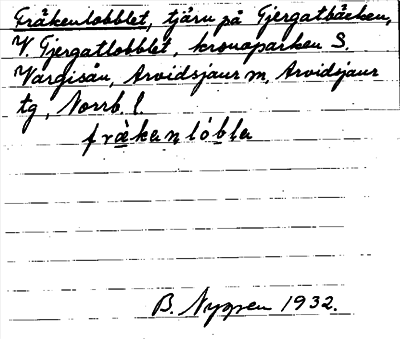 Fräkenlobblet, tjärn på Tjergatbäcken,
V. Tjergatlobblet, kronoparken S.
Vargisån, Arvidsjaur m, Arvidsjaur
tg, Norrb. l.
frækenlóbla
B. Nygren 1932.